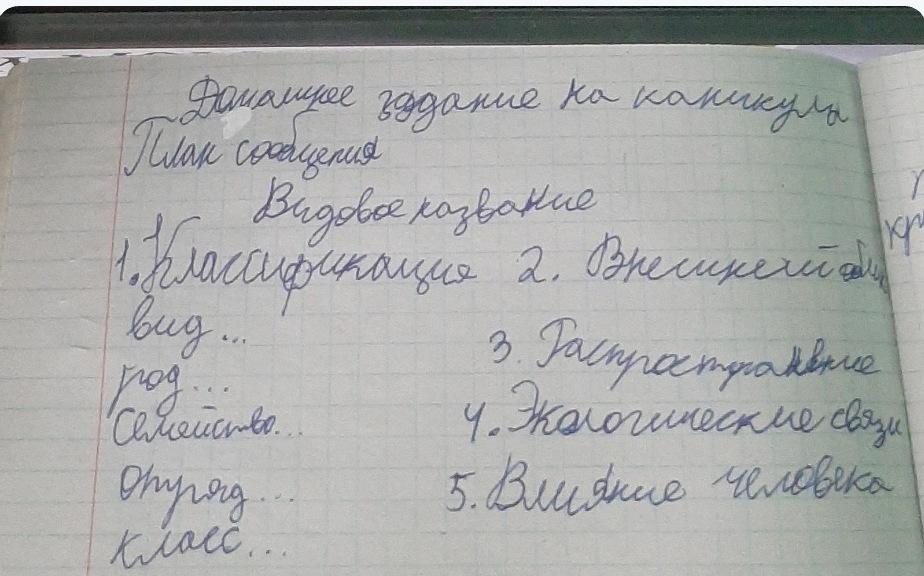 Домашнее задание на каникулы
План сообщения
Видовое название
1. Классификация 2. Внешний облик
вид...
3. Распространение
род...
Семейство... 4. Экологические связи
Отряд... 5. Влияние человека
Класс...